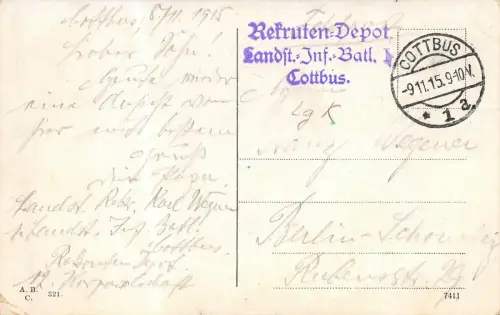 Cottbus, 8/11. 1915
Lieber Sohn!
wieder
eine Ansicht von
hier mit bestem
Gruß
Dein Papa.
Landst. Rekr. Karl Wegener
Landst. Inf. Batl.
Cottbus.
Rekruten Depot
12. Korporalschaft
A. B.
C.
321.
Feldpost
Rekruten-Depot
Landst.-Inf.-Batl.
Cottbus.
COTTBUS
-9.11.15.9-10V.
* 1 a.
Herrn
Wegener
Berlin-Schöneberg
Rubensstr.
7411